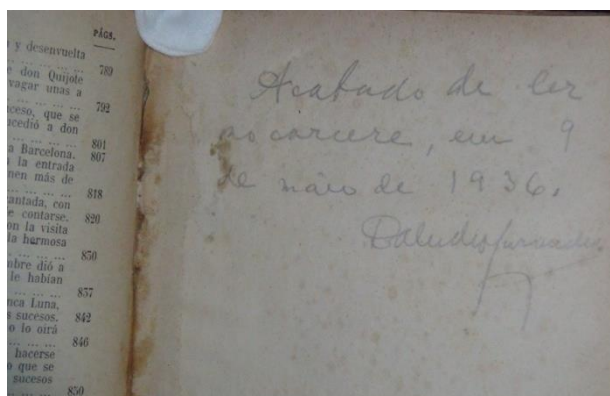 PÁGS.
y desenvuelta
... ... ... 789
e don Quijote
vagar unas a
... ... ... 792
ceso, que se
ucedió a don
... ... ... 801
a Barcelona. 807
a la entrada
nen más de
... ... ... 818
antada, con
e contarse. 826
on la visita
la hermosa
... ... ... 830
mbre dió a
le habían
... ... ... 837
nca Luna,
s sucesos. 842
o lo oirá
... ... ... 846
hacerse
o que se
sucesos
... ... ... 850
Acabado de ler
no carcere, em 9
de maio de 1936.